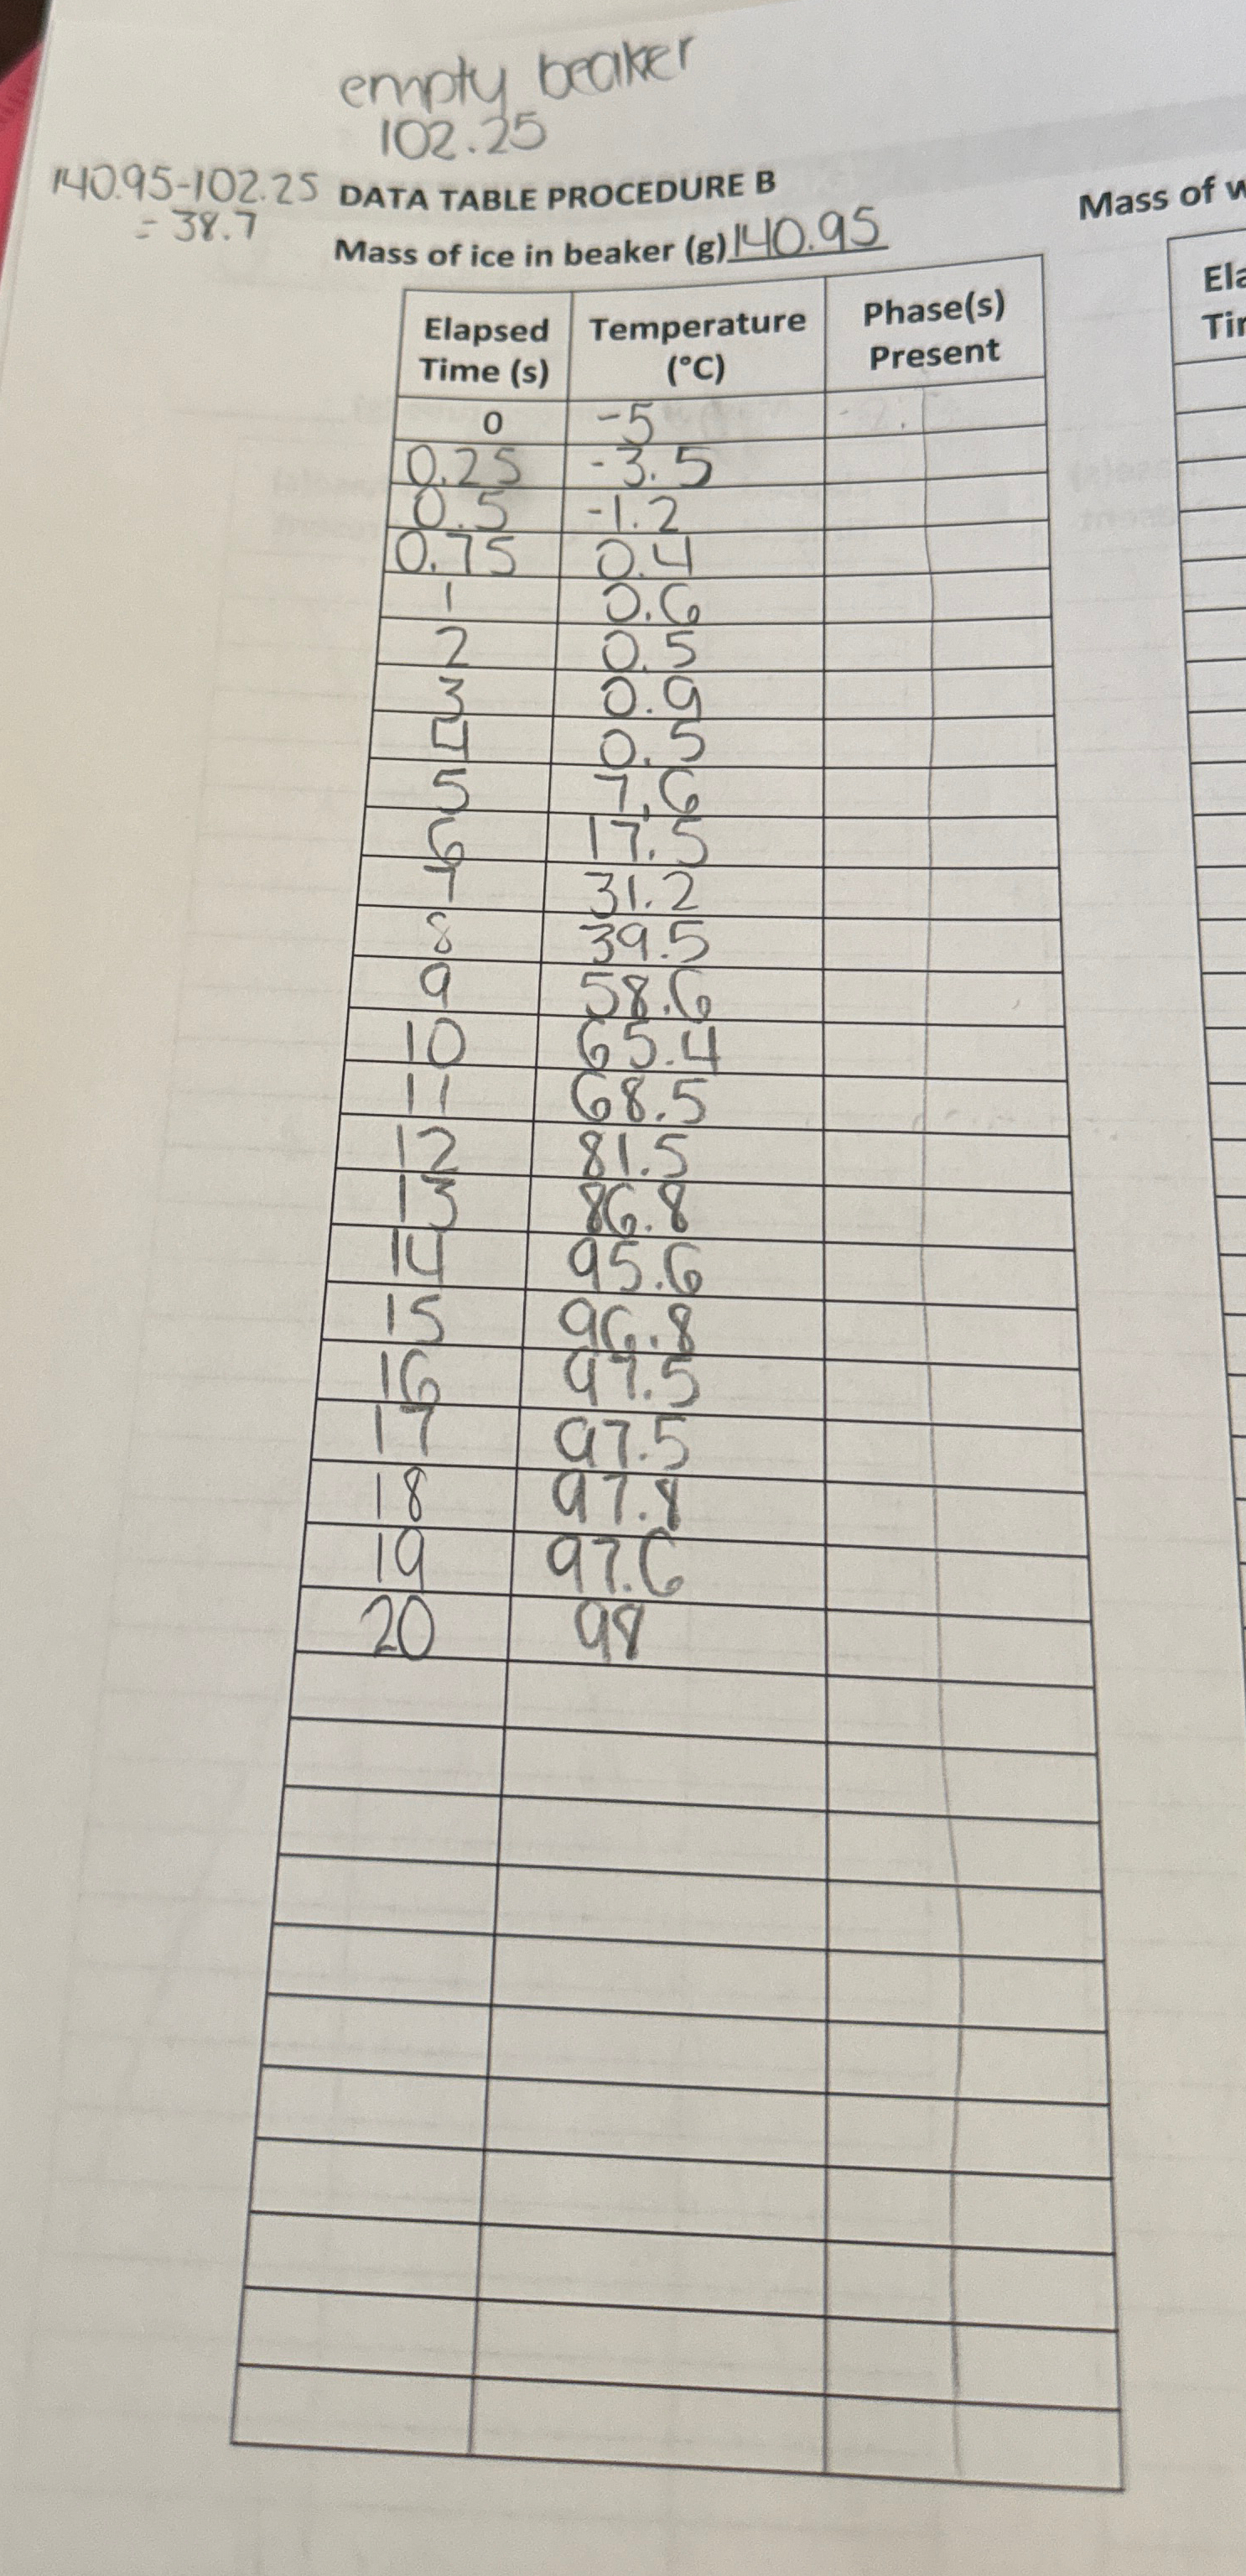 empty beaker
102.25
140.95-102.25
= 38.7
DATA TABLE PROCEDURE B
Mass of
Mass of ice in beaker (g) 140.95
Elapsed Time (s) Temperature (°C) Phase(s) Present
0 -5
0.25 -3.5
0.5 -1.2
0.75 0.4
1 0.6
2 0.5
3 0.9
4 0.5
5 7.6
6 17.5
7 31.2
8 39.5
9 58.6
10 65.4
11 68.5
12 81.5
13 86.8
14 95.6
15 96.8
16 97.5
17 97.5
18 97.8
19 97.6
20 98